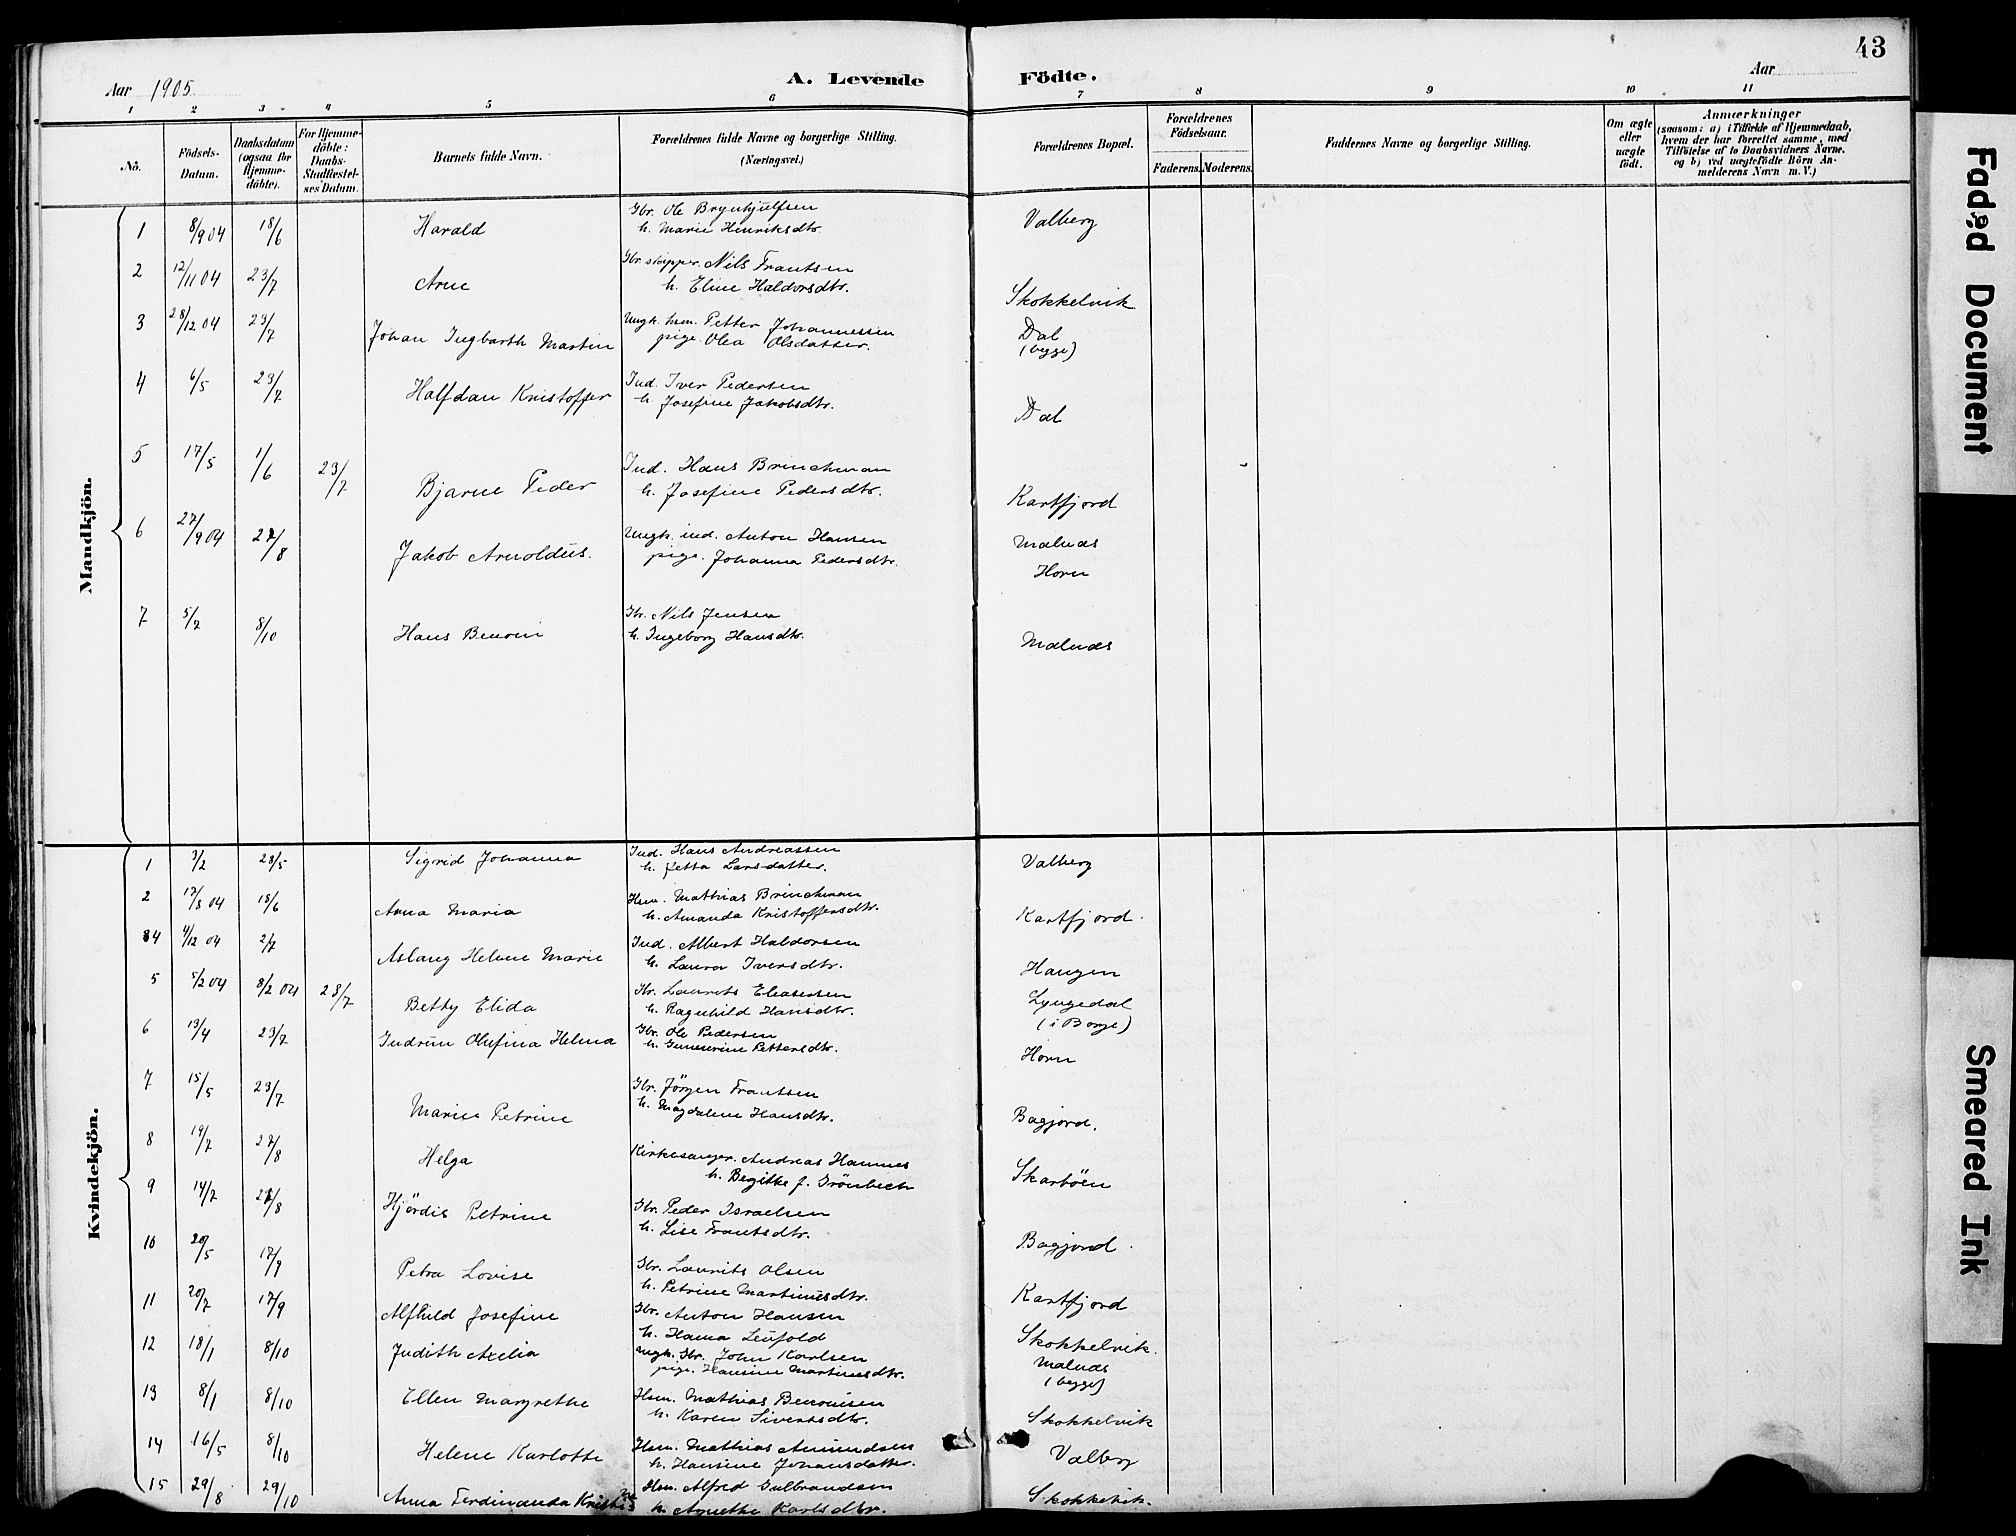 43
Aar 1905
A. Levende Födte.
Aar
1 2 3 4 5 6 7 8 9 10 11
No.
Födsels-Datum.
Daabsdatum (ogsaa for Hjemmedöbte).
For Hjemmedöbte: Daabs-Stadfæstelses Datum.
Barnets fulde Navn.
Forældrenes fulde Navne og borgerlige Stilling. (Næringsvei.)
Forældrenes Bopæl.
Forældrenes Födselsaar.
Faderens. Moderens.
Faddernes Navne og borgerlige Stilling.
Om ægte eller uægte födt.
Anmærkninger
(saasom: a) i Tilfælde af Hjemmedaab, hvem der har forrettet samme, med Tilföielse af to Daabsvidners Navne, og b) ved uægtefödte Börn Anmelderens Navn m. V.)
Mandkjön.
1 8/9 04 18/6 Harald Gbr. Ole Brynhjulfsen Valberg
h. Marie Henriksdtr.
2 12/11 04 23/7 Arne Gbr. skipper. Nils Frantsen
h. Eline Haldorsdtr. Skokkelvik
3 28/12 04 23/7 Johan Ingbarth Martin Ungk. hsm. Petter Johannessen Dal
pige. Olea Olsdatter. (begge)
4 6/5 23/7 Halfdan Kristoffer Ind. Iver Pedersen
h. Josefine Jakobsdtr. Dal
5 17/5 1/6 23/7 Bjarne Peder Ind. Hans Brinchman
h. Josefine Pedersdtr. Kartfjord
6 27/9 04 27/8 Jakob Arnoldus. Ungk. ind. Anton Hansen Malnæs
pige. Johanna Pedersdtr. Horn
7 5/7 8/10 Hans Benoni Gbr. Nils Jensen
h. Ingeborg Hansdtr. Malnæs
Kvindekjön.
1 3/2 28/5 Sigrid Johanna Ind. Hans Andreassen Valberg
h. Jetta Larsdatter.
2 17/8 04 18/6 Anna Maria Hsm. Mathias Brinchman
h. Amanda Kristoffersdtr. Kartfjord.
4 4/12 04 2/7 Aslaug Helene Marie Ind. Albert Haldorsen
h. Laura Iversdtr. Haugen
5 5/2 04 8/2 04 23/7 Betty Elida Gbr. Laurits Eleasersen Lyngedal
h. Ragnhild Hansdtr. (i Borge)
6 13/4 23/7 Gudrun Olufina Helena Gbr. Ole Pedersen
h. Pettersdtr. Horn
7 15/5 23/7 Marie Petrine Gbr. Jörgen Frantsen
h. Magdalene Hansdtr. Bagjord.
8 19/7 27/8 Helga Kirkesanger. Andreas Hannes
h. Begitte f. Grönbech Skarböen
9 14/7 27/8 Hjördis Petrine Gbr. Peder Israelsen
h. Lise Frantsdtr. Bagjord.
10 20/5 17/9 Petra Lovise Gbr. Laurits Olsen
h. Petrine Martinusdtr. Kartfjord
11 20/7 17/9 Alfhild Josefine Gbr. Anton Hansen
h. Hanna Leufold Skokkelvik.
12 18/1 8/10 Judith Axelia Ungk. Gbr. John Karlsen Malnæs
pige. Hansine Martinusdtr. (begge)
13 8/1 8/10 Ellen Margrethe Hsm. Mathias Benonisen
h. Karen Sivertsdtr. Skokkelvik
14 16/5 8/10 Helene Karlotte Hsm. Mathias Amundsen Valberg
h. Hansine Johansdatter.
15 29/8 29/10 Anna Ferdinanda Hsm. Alfred Gulbrandsen Skokkelvik.
h. Agnethe Karlsdtr.
Faded Document
Smeared Ink